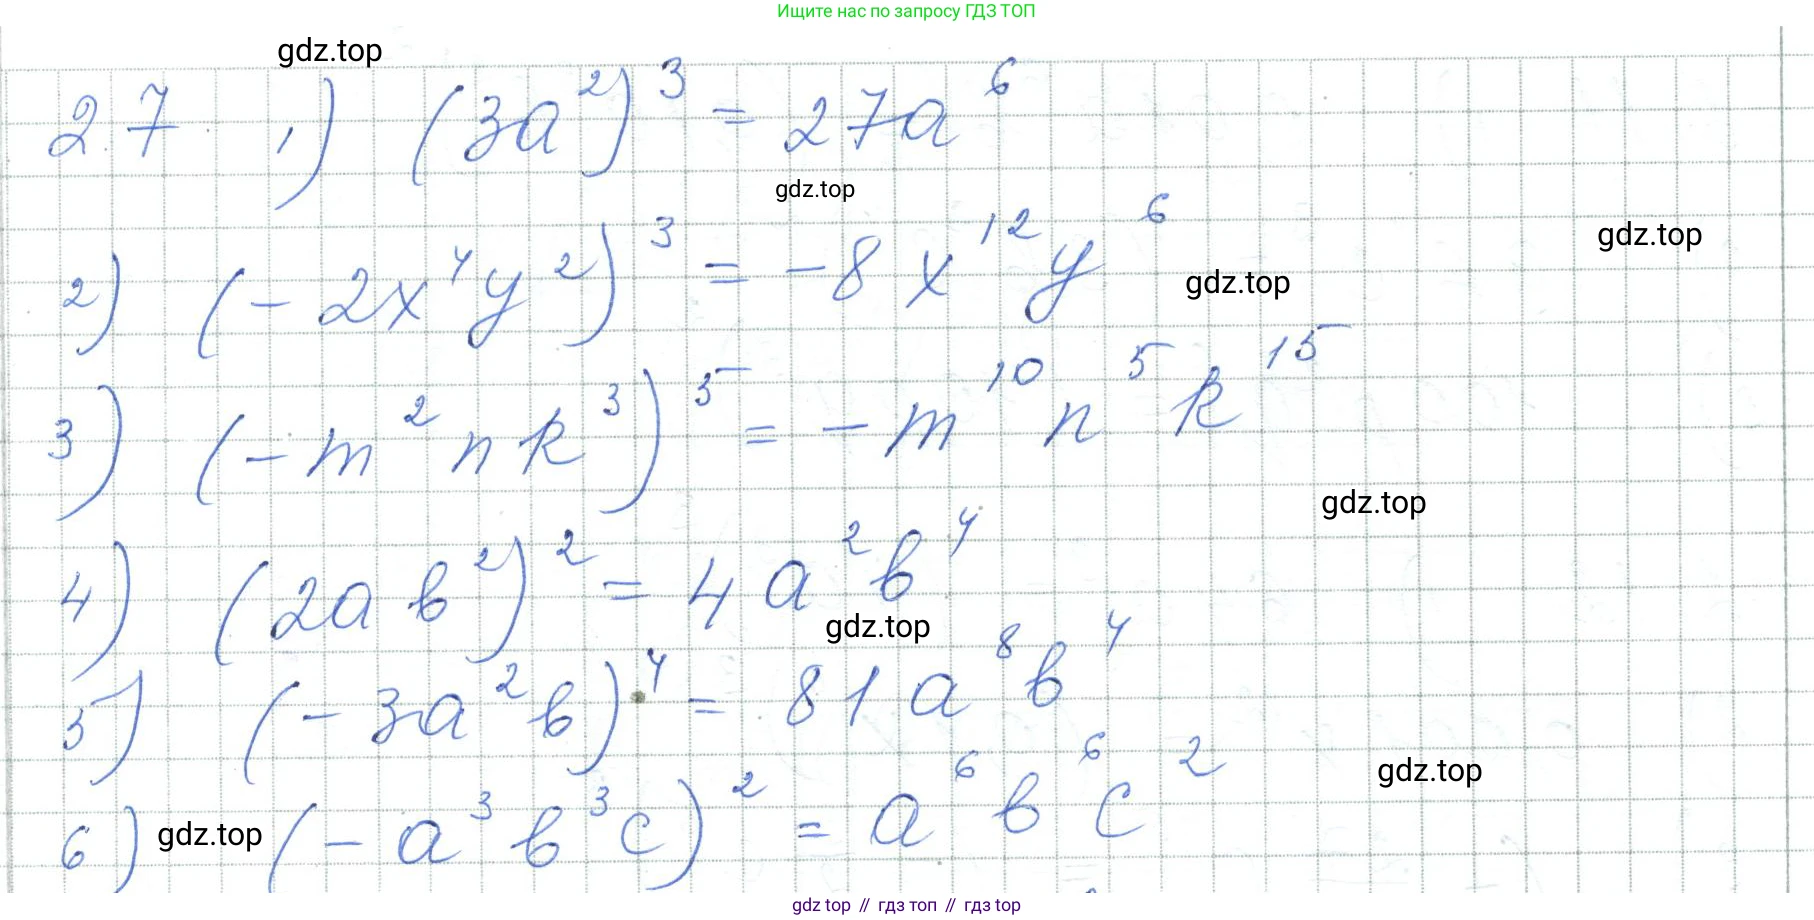 Ищите нас по запросу ГДЗ ТОП
gdz.top
27 1) (3a²)³ = 27a⁶
gdz.top
gdz.top
2) (-2x⁴y²)³ = -8x¹²y⁶
gdz.top
3) (-m²nk³)⁵ = -m¹⁰n⁵k¹⁵
gdz.top
4) (2ab²)² = 4a²b⁴
gdz.top
5) (-3a²b)⁴ = 81a⁸b⁴
gdz.top
6) (-a³b³c)² = a⁶b⁶c²
gdz.top
gdz top // гдз топ // гдз top